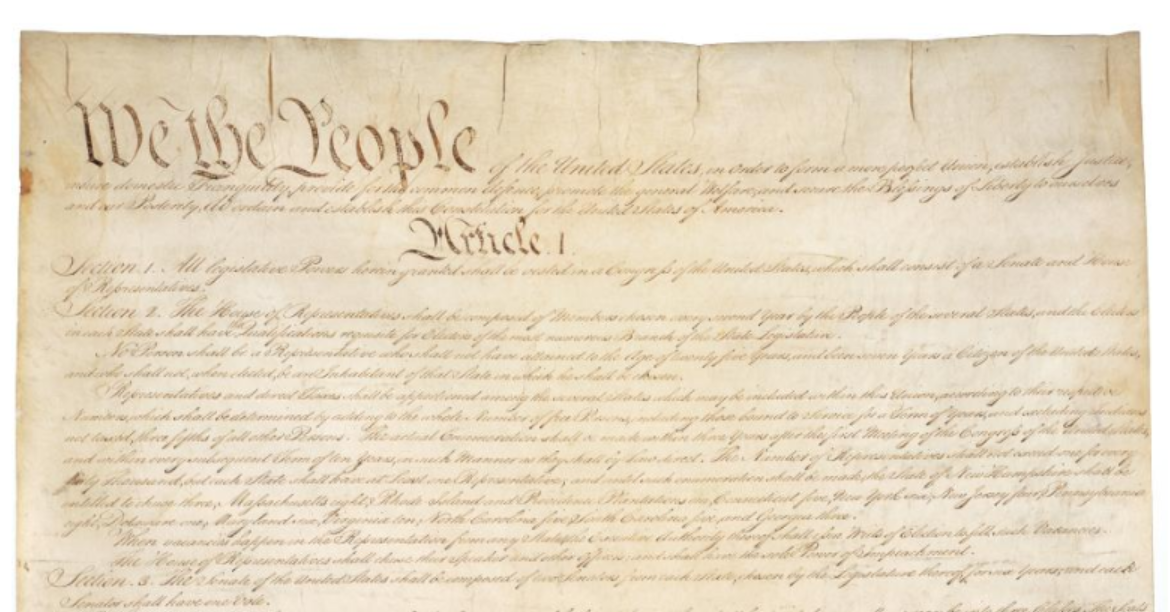 We the People of the United States, in Order to form a more perfect Union, establish Justice,
insure domestic Tranquility, provide for the common defence, promote the general Welfare, and secure the Blessings of Liberty to ourselves
and our Posterity, do ordain and establish this Constitution for the United States of America.
Article. I.
Section. 1. All legislative Powers herein granted shall be vested in a Congress of the United States, which shall consist of a Senate and House
of Representatives.
Section. 2. The House of Representatives shall be composed of Members chosen every second Year by the People of the several States, and the Electors
in each State shall have the Qualifications requisite for Electors of the most numerous Branch of the State Legislature.
No Person shall be a Representative who shall not have attained to the Age of twenty five Years, and been seven Years a Citizen of the United States,
and who shall not, when elected, be an Inhabitant of that State in which he shall be chosen.
Representatives and direct Taxes shall be apportioned among the several States which may be included within this Union, according to their respective
Numbers, which shall be determined by adding to the whole Number of free Persons, including those bound to Service for a Term of Years, and excluding Indians
not taxed, three fifths of all other Persons. The actual Enumeration shall be made within three Years after the first Meeting of the Congress of the United States,
and within every subsequent Term of ten Years, in such Manner as they shall by Law direct. The Number of Representatives shall not exceed one for every
thirty Thousand, but each State shall have at Least one Representative; and until such enumeration shall be made, the State of New Hampshire shall be
entitled to chuse three, Massachusetts eight, Rhode-Island and Providence Plantations one, Connecticut five, New-York six, New Jersey four, Pennsylvania
eight, Delaware one, Maryland six, Virginia ten, North Carolina five, South Carolina five, and Georgia three.
When vacancies happen in the Representation from any State, the Executive Authority thereof shall issue Writs of Election to fill such Vacancies.
The House of Representatives shall chuse their Speaker and other Officers; and shall have the sole Power of Impeachment.
Section. 3. The Senate of the United States shall be composed of two Senators from each State, chosen by the Legislature thereof, for six Years; and each
Senator shall have one Vote.